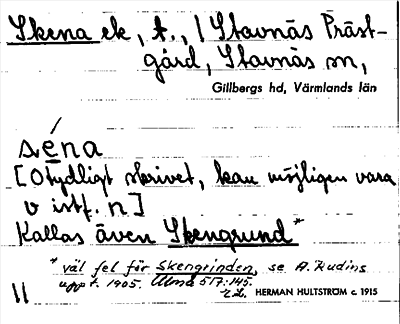 Skena ek, t., / Stavnäs Präst-
gård, Stavnäs sn,
Gillbergs hd, Värmlands län
s.éna
[Otydligt skrivet, kan möjligen vara
v istf. n]
Kallas även Skengrund*
* väl fel för Skengrinden, se A. Rudins
uppt. 1905. Ulma 517:145.
HERMAN HULTSTRÖM c. 1915
11